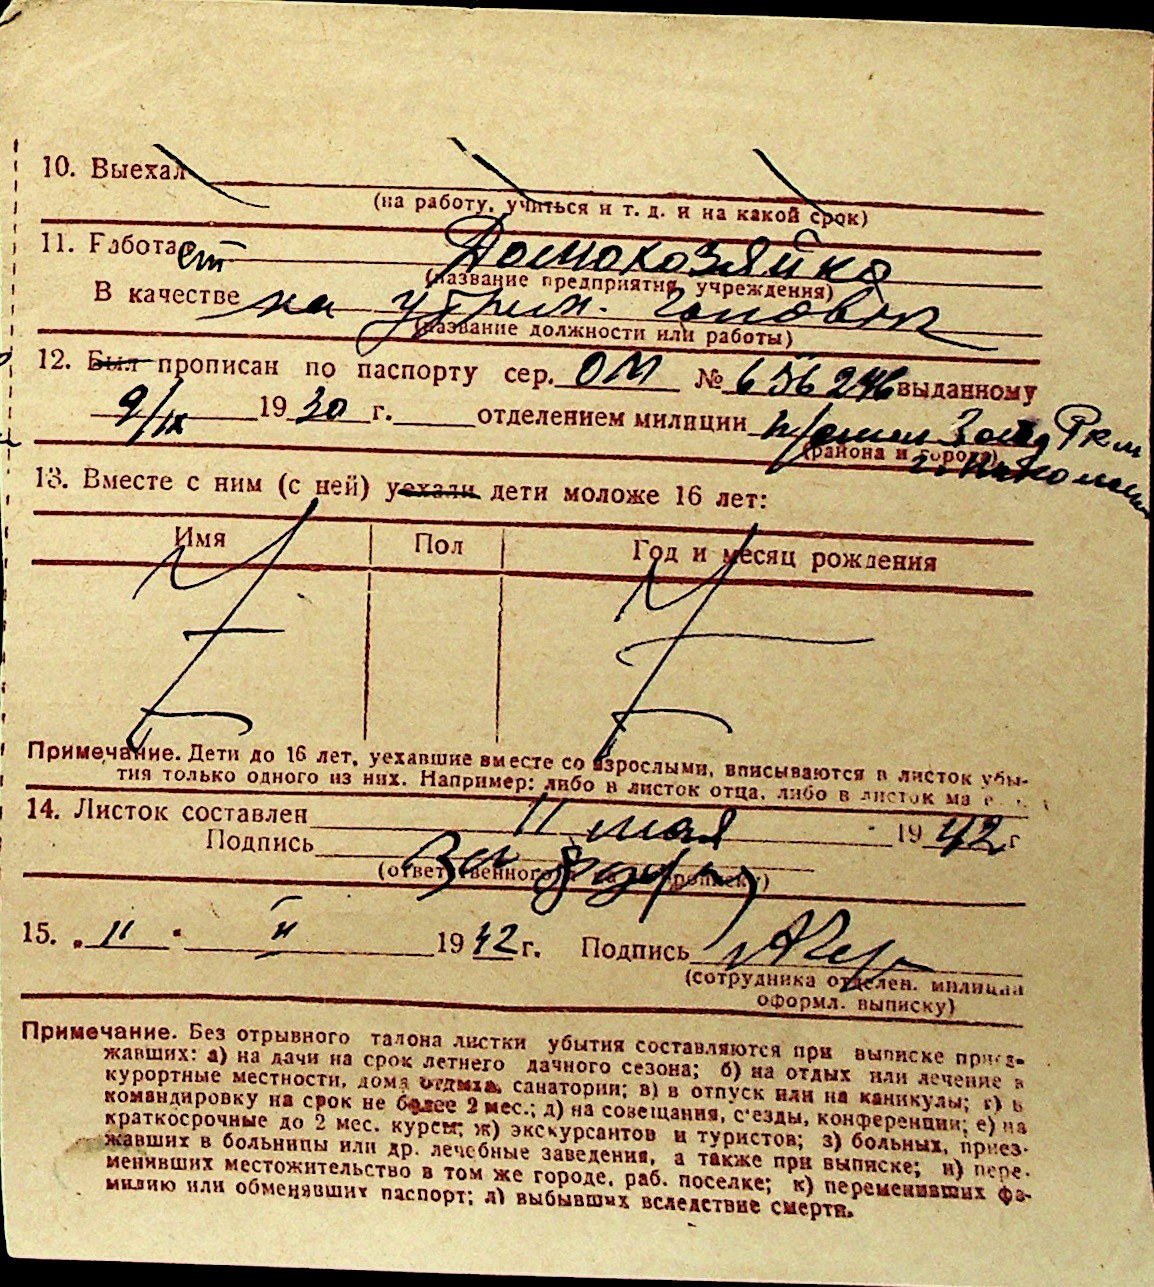 10. Выехал
(на работу, учиться и т. д. и на какой срок)
11. Работает Домохозяйка
(название предприятия, учреждения)
В качестве на
(название должности или работы)
12. Был прописан по паспорту сер. ОМ № 656246 выданному
9/IX 1930 г. отделением милиции
(района и города)
13. Вместе с ним (с ней) уехали дети моложе 16 лет:
Имя Пол Год и месяц рождения
Примечание. Дети до 16 лет, уехавшие вместе со взрослыми, вписываются в листок убы-
тия только одного из них. Например: либо в листок отца, либо в листок
14. Листок составлен 11 мая 1942 г
Подпись
(ответственного за прописку)
15. „11" II 1942 г. Подпись
(сотрудника отделен. милиции
оформл. выписку)
Примечание. Без отрывного талона листки убытия составляются при выписке приез-
жавших: а) на дачи на срок летнего дачного сезона; б) на отдых или лечение в
курортные местности, дома отдыха, санатории; в) в отпуск или на каникулы; г) в
командировку на срок не более 2 мес.; д) на совещания, с'езды, конференции; е) на
краткосрочные до 2 мес. курсы; ж) экскурсантов и туристов; з) больных, приез-
жавших в больницы или др. лечебные заведения, а также при выписке; и) пере-
менивших местожительство в том же городе, раб. поселке; к) переменивших фа-
милию или обменявших паспорт; л) выбывших вследствие смерти.